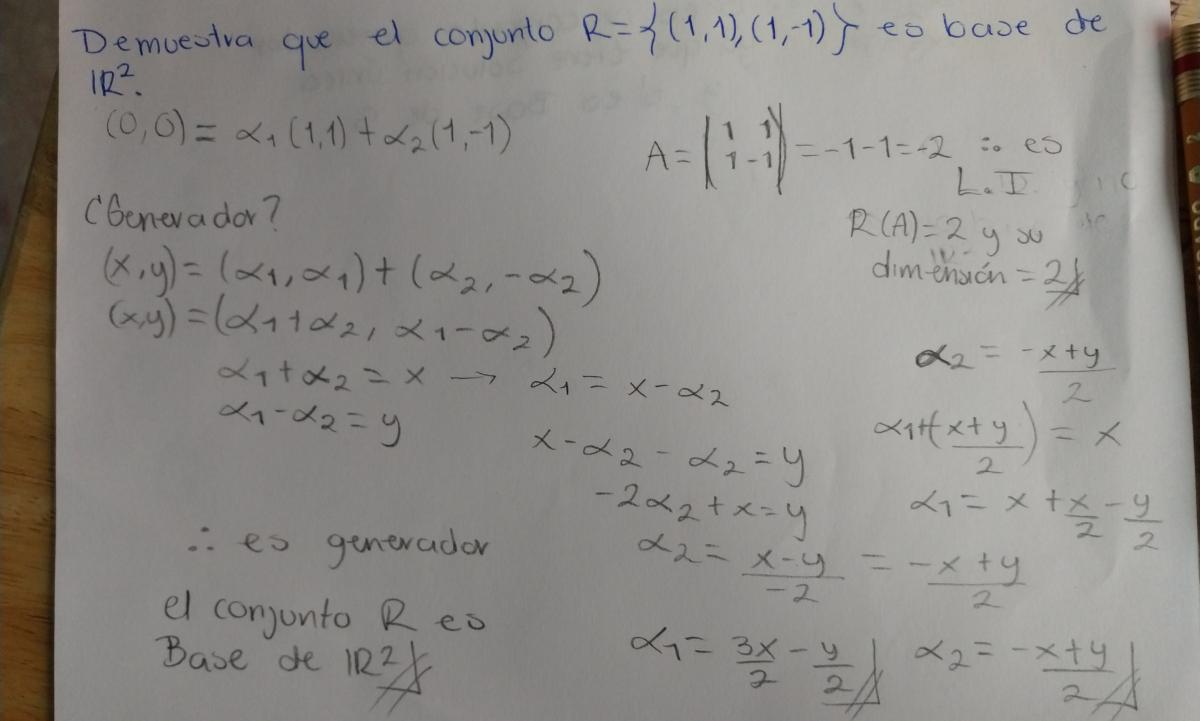 Demuestra que el conjunto R={(1,1),(1,-1)} es base de
IR².
(0,0)= α₁(1,1)+α₂(1,-1)
A= |1 1|
|1 -1| = -1-1=-2 ∴ es
L.I.
R(A)=2 y su
dimensión = 2
¿Generador?
(x,y)= (α₁,α₁)+(α₂,-α₂)
(x,y)=(α₁+α₂, α₁-α₂)
α₁+α₂=x → α₁= x-α₂
α₁-α₂=y
x-α₂-α₂=y
-2α₂+x=y
α₂= x-y/-2 = -x+y/2
α₂= -x+y/2
α₁+(-x+y/2)= x
α₁= x+x/2-y/2
α₁= 3x/2-y/2 α₂= -x+y/2
∴ es generador
el conjunto R es
Base de IR²